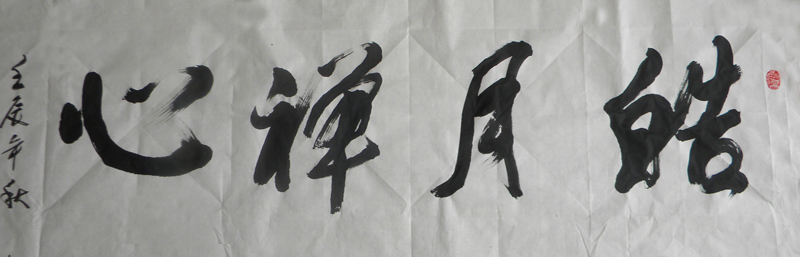 皓月禅心
壬辰年秋